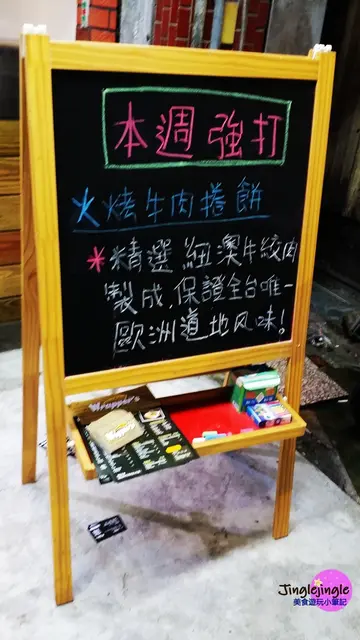 本週強打
火烤牛肉捲餅
*精選紐澳牛絞肉
製成，保證全台唯一
歐洲道地风味！
Wrapper's
Jinglejingle
美食遊玩小筆記